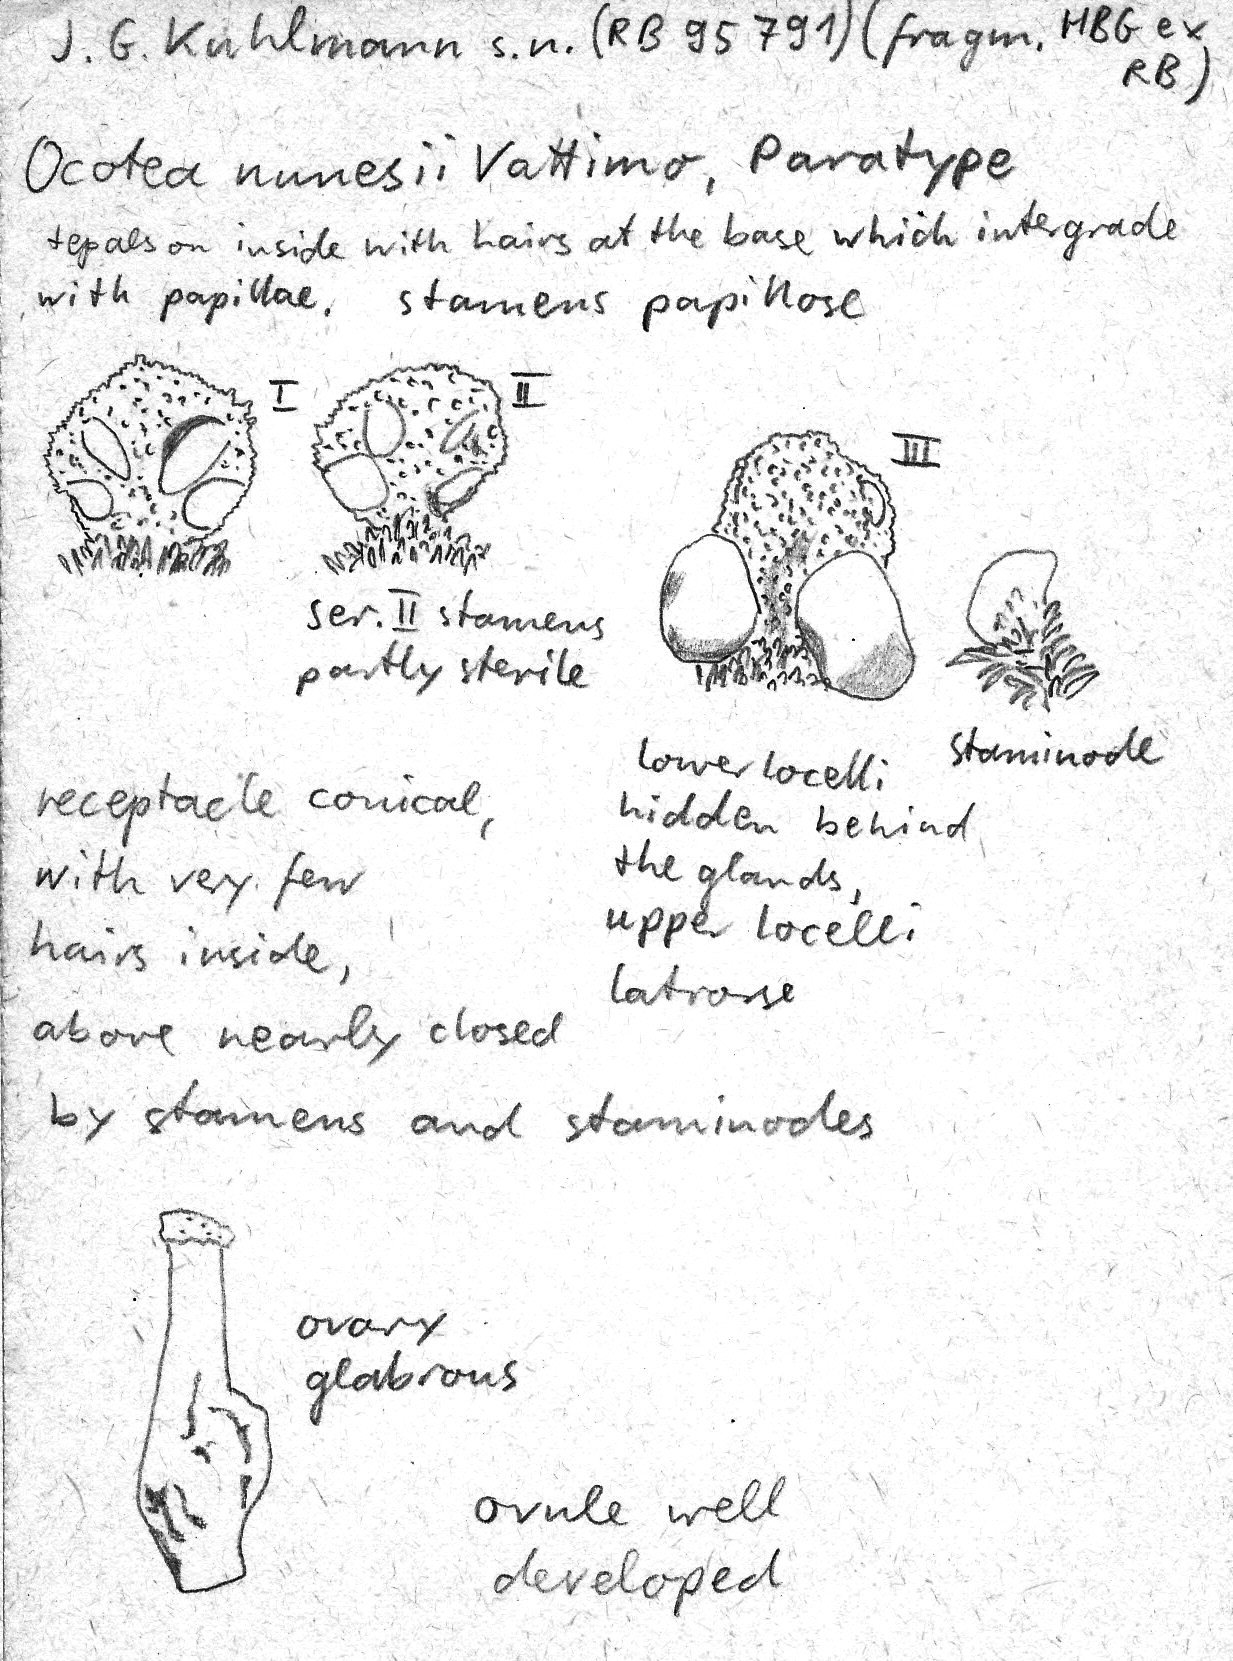 J. G. Kuhlmann s.n. (RB 95791) (fragm. HBG ex
RB)
Ocotea nunesii Vattimo, Paratype
tepals on inside with hairs at the base which intergrade
with papillae. stamens papillose
I
II
III
ser. II stamens
partly sterile
staminode
lower locelli
hidden behind
the glands,
upper locelli
latrorse
receptacle conical,
with very few
hairs inside,
above nearly closed
by stamens and staminodes
ovary
glabrous
ovule well
developed